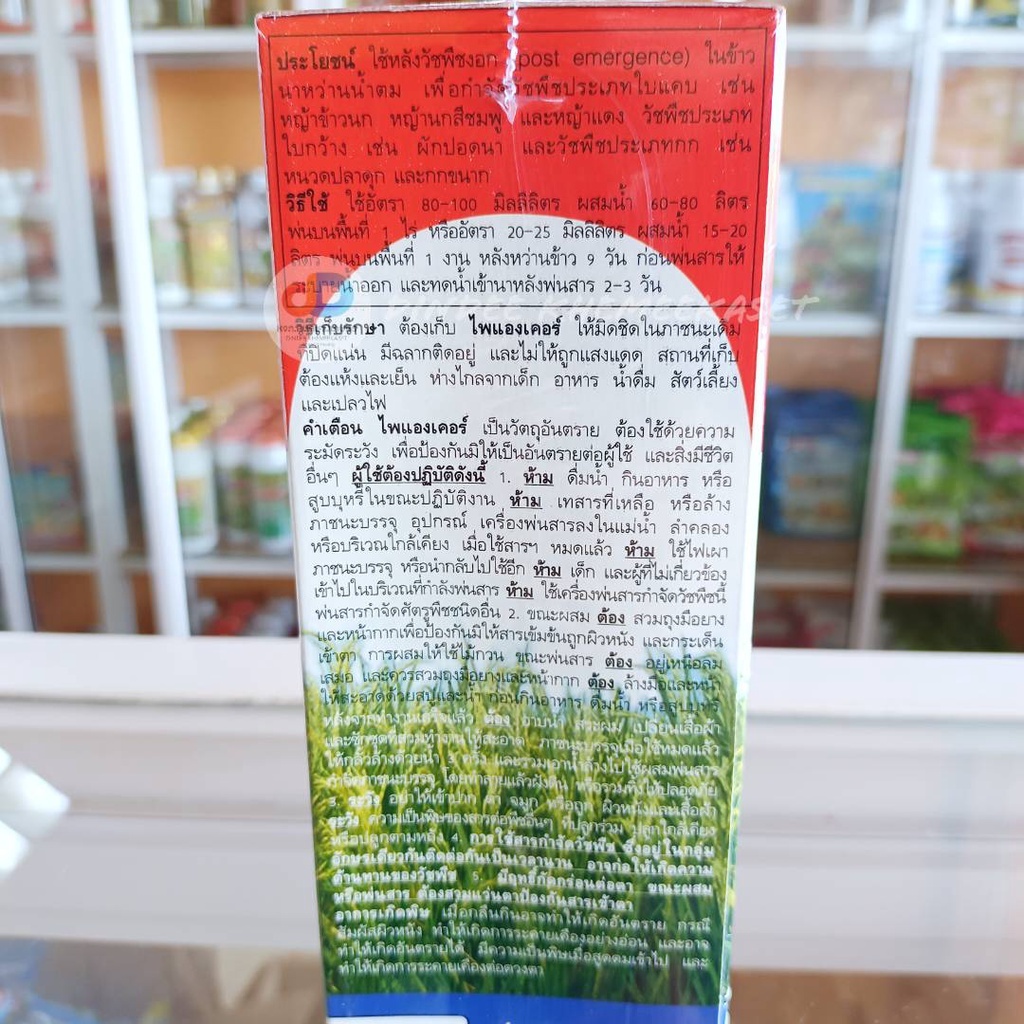 ประโยชน์ ใช้หลังวัชพืชงอก (post emergence) ในข้าว
นาหว่านน้ำตม เพื่อกำจัดวัชพืชประเภทใบแคบ เช่น
หญ้าข้าวนก หญ้านกสีชมพู และหญ้าแดง วัชพืชประเภท
ใบกว้าง เช่น ผักปอดนา และวัชพืชประเภทกก เช่น
หนวดปลาดุก และกกขนาก
วิธีใช้ ใช้อัตรา 80-100 มิลลิลิตร ผสมน้ำ 60-80 ลิตร
พ่นบนพื้นที่ 1 ไร่ หรืออัตรา 20-25 มิลลิลิตร ผสมน้ำ 15-20
ลิตร พ่นบนพื้นที่ 1 งาน หลังหว่านข้าว 9 วัน ก่อนพ่นสารให้
ระบายน้ำออก และทดน้ำเข้านาหลังพ่นสาร 2-3 วัน
วิธีเก็บรักษา ต้องเก็บ ไพแองเคอร์ ให้มิดชิดในภาชนะเดิม
ที่ปิดแน่น มีฉลากติดอยู่ และไม่ให้ถูกแสงแดด สถานที่เก็บ
ต้องแห้งและเย็น ห่างไกลจากเด็ก อาหาร น้ำดื่ม สัตว์เลี้ยง
และเปลวไฟ
คำเตือน ไพแองเคอร์ เป็นวัตถุอันตราย ต้องใช้ด้วยความ
ระมัดระวัง เพื่อป้องกันมิให้เป็นอันตรายต่อผู้ใช้ และสิ่งมีชีวิต
อื่นๆ ผู้ใช้ต้องปฏิบัติดังนี้ 1. ห้าม ดื่มน้ำ กินอาหาร หรือ
สูบบุหรี่ในขณะปฏิบัติงาน ห้าม เทสารที่เหลือ หรือล้าง
ภาชนะบรรจุ อุปกรณ์ เครื่องพ่นสารลงในแม่น้ำ ลำคลอง
หรือบริเวณใกล้เคียง เมื่อใช้สารฯ หมดแล้ว ห้าม ใช้ไฟเผา
ภาชนะบรรจุ หรือนำกลับไปใช้อีก ห้าม เด็ก และผู้ที่ไม่เกี่ยวข้อง
เข้าไปในบริเวณที่กำลังพ่นสาร ห้าม ใช้เครื่องพ่นสารกำจัดวัชพืชนี้
พ่นสารกำจัดศัตรูพืชชนิดอื่น 2. ขณะผสม ต้อง สวมถุงมือยาง
และหน้ากากเพื่อป้องกันมิให้สารเข้มข้นถูกผิวหนัง และกระเด็น
เข้าตา การผสมให้ใช้ไม้กวน ขณะพ่นสาร ต้อง อยู่เหนือลม
เสมอ และควรสวมถุงมือยางและหน้ากาก ต้อง ล้างมือและหน้า
ให้สะอาดด้วยสบู่และน้ำ ก่อนกินอาหาร ดื่มน้ำ หรือสูบบุหรี่
หลังจากทำงานเสร็จแล้ว ต้อง อาบน้ำ สระผม เปลี่ยนเสื้อผ้า
และซักชุดที่สวมทำงานให้สะอาด ภาชนะบรรจุเมื่อใช้หมดแล้ว
ให้กลั้วล้างด้วยน้ำ 3 ครั้ง และรวมเอาน้ำล้างไปใช้ผสมพ่นสาร
กำจัดภาชนะบรรจุ โดยทำลายแล้วฝังดิน หรือรวมทิ้งให้ปลอดภัย
3. ระวัง อย่าให้เข้าปาก ตา จมูก หรือถูก ผิวหนังและเสื้อผ้า
ระวัง ความเป็นพิษของสารต่อพืชอื่นๆ ที่ปลูกร่วม ปลูกใกล้เคียง
หรือปลูกตามหลัง 4. การใช้สารกำจัดวัชพืช ซึ่งอยู่ในกลุ่ม
อักษรเดียวกันติดต่อกันเป็นเวลานาน อาจก่อให้เกิดความ
ต้านทานของวัชพืช มีฤทธิ์กัดกร่อนต่อตา ขณะผสม
หรือพ่นสาร ต้องสวมแว่นตาป้องกันสารเข้าตา
อาการเกิดพิษ เมื่อกลืนกินอาจทำให้เกิดอันตราย กรณี
สัมผัสผิวหนัง ทำให้เกิดการระคายเคืองอย่างอ่อน และอาจ
ทำให้เกิดอันตรายได้ มีความเป็นพิษเมื่อสูดดมเข้าไป และ
ทำให้เกิดการระคายเคืองต่อดวงตา